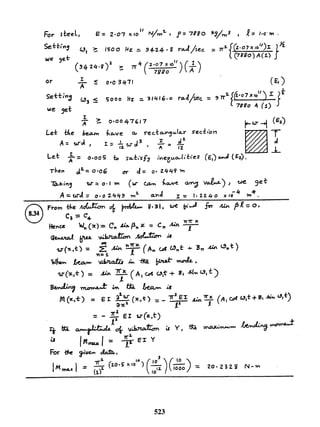 For steel, E = 2.07 × 10^11 N/m², ρ = 7880 kg/m³, l = 1.0 m.
Setting ω₁ ≥ 1500 Hz = 9424.8 rad/sec = π² {(2.07×10^11) I / (7880)(A)(1)}^½
we get
(9424.8)² ≤ π⁴ (2.07×10^11 / 7880)(I/A)
or I/A ≤ 0.03471 (E₁)
Setting ω₃ ≤ 5000 Hz = 31416.0 rad/sec = 9π² {(2.07×10^11) I / 7880 A (1)}^½
we get
I/A ≥ 0.0047617 (E₂)
Let the beam have a rectangular section
A = wd, I = 1/12 w d³, I/A = d²/12
w
d
Let I/A = 0.005 to satisfy inequalities (E₁) and (E₂).
Then d² = 0.06 or d = 0.2449 m
Taking w = 0.1 m (w can have any value), we get
A = wd = 0.02449 m² and I = 1.2240 × 10^-4 m⁴.
8.34 From the solution of problem 8.31, we find for sin βl = 0.
C₃ = C₄
Hence Wₙ(x) = Cₙ sin βₙx = Cₙ sin nπx/l
General free vibration solution is
w(x,t) = Σ n=1 ∞ sin nπx/l (Aₙ cos ωₙt + Bₙ sin ωₙt)
When beam vibrates in the first mode,
w(x,t) = sin πx/l (A₁ cos ω₁t + B₁ sin ω₁t)
Bending moment in the beam is
M(x,t) = EI ∂²w/∂x² (x,t) = - π²EI/l² sin πx/l (A₁ cos ω₁t + B₁ sin ω₁t)
= - π²/l² EI w(x,t)
If the amplitude of vibration is Y, the maximum bending moment
is |Mmax| = π²/l² EI Y
For the given data,
|Mmax| = π²/(1)² (20.5×10^10)(10⁵/10^12)(10/1000) = 20.2328 N-m
523